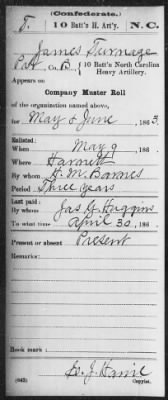 (Confederate.)
T. 10 Batt'n H. Art'y. N.C.
James Turnage
Pvt, Co. B, 10 Batt'n North Carolina
Heavy Artillery.
Appears on
Company Muster Roll
of the organization named above,
for May & June, 1863.
Enlisted:
When May 9, 186
Where Harnett
By whom H. M. Barnes
Period Three years
Last paid:
By whom Jas G Huggins
To what time April 30, 186
Present or absent Present
Remarks:
Book mark:
(642) Copyist.